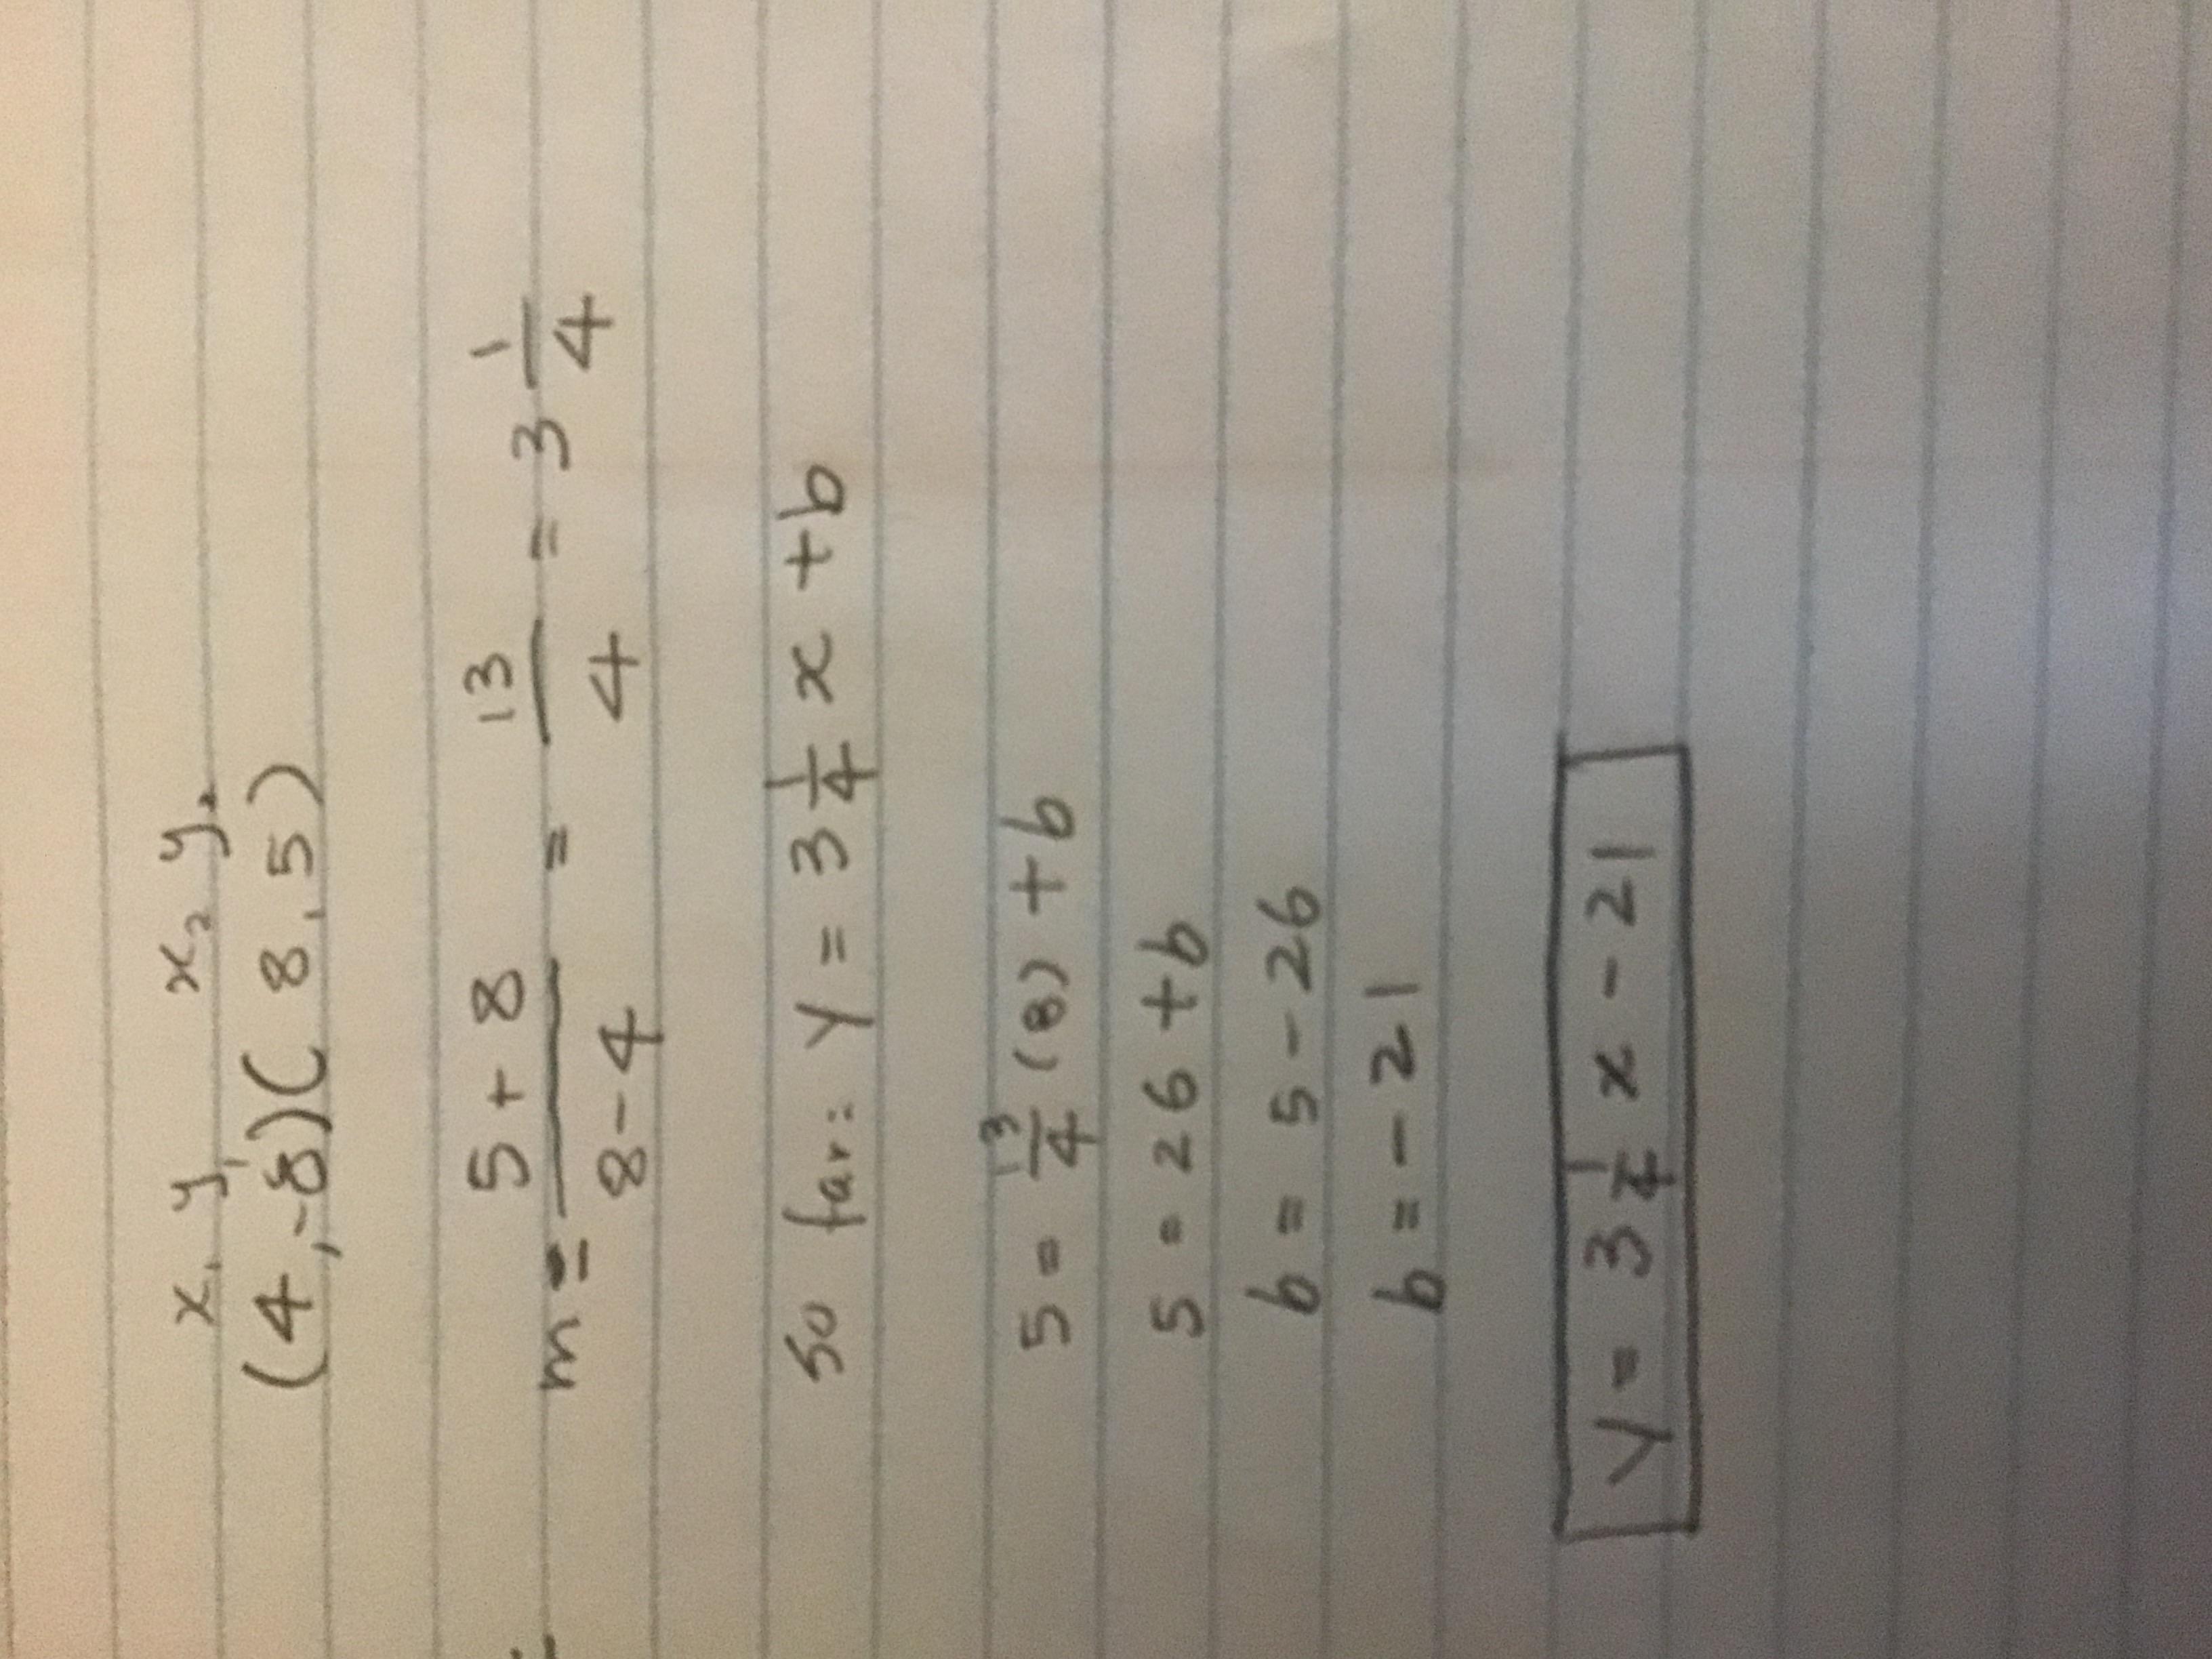 x₁ y₁ x₂ y₂
(4,-8)(8,5)
m = 5+8/8-4 = 13/4 = 3 1/4
so far: y = 3 1/4 x + b
5 = 13/4 (8) + b
5 = 26 + b
b = 5 - 26
b = - 21
y = 3 1/4 x - 21